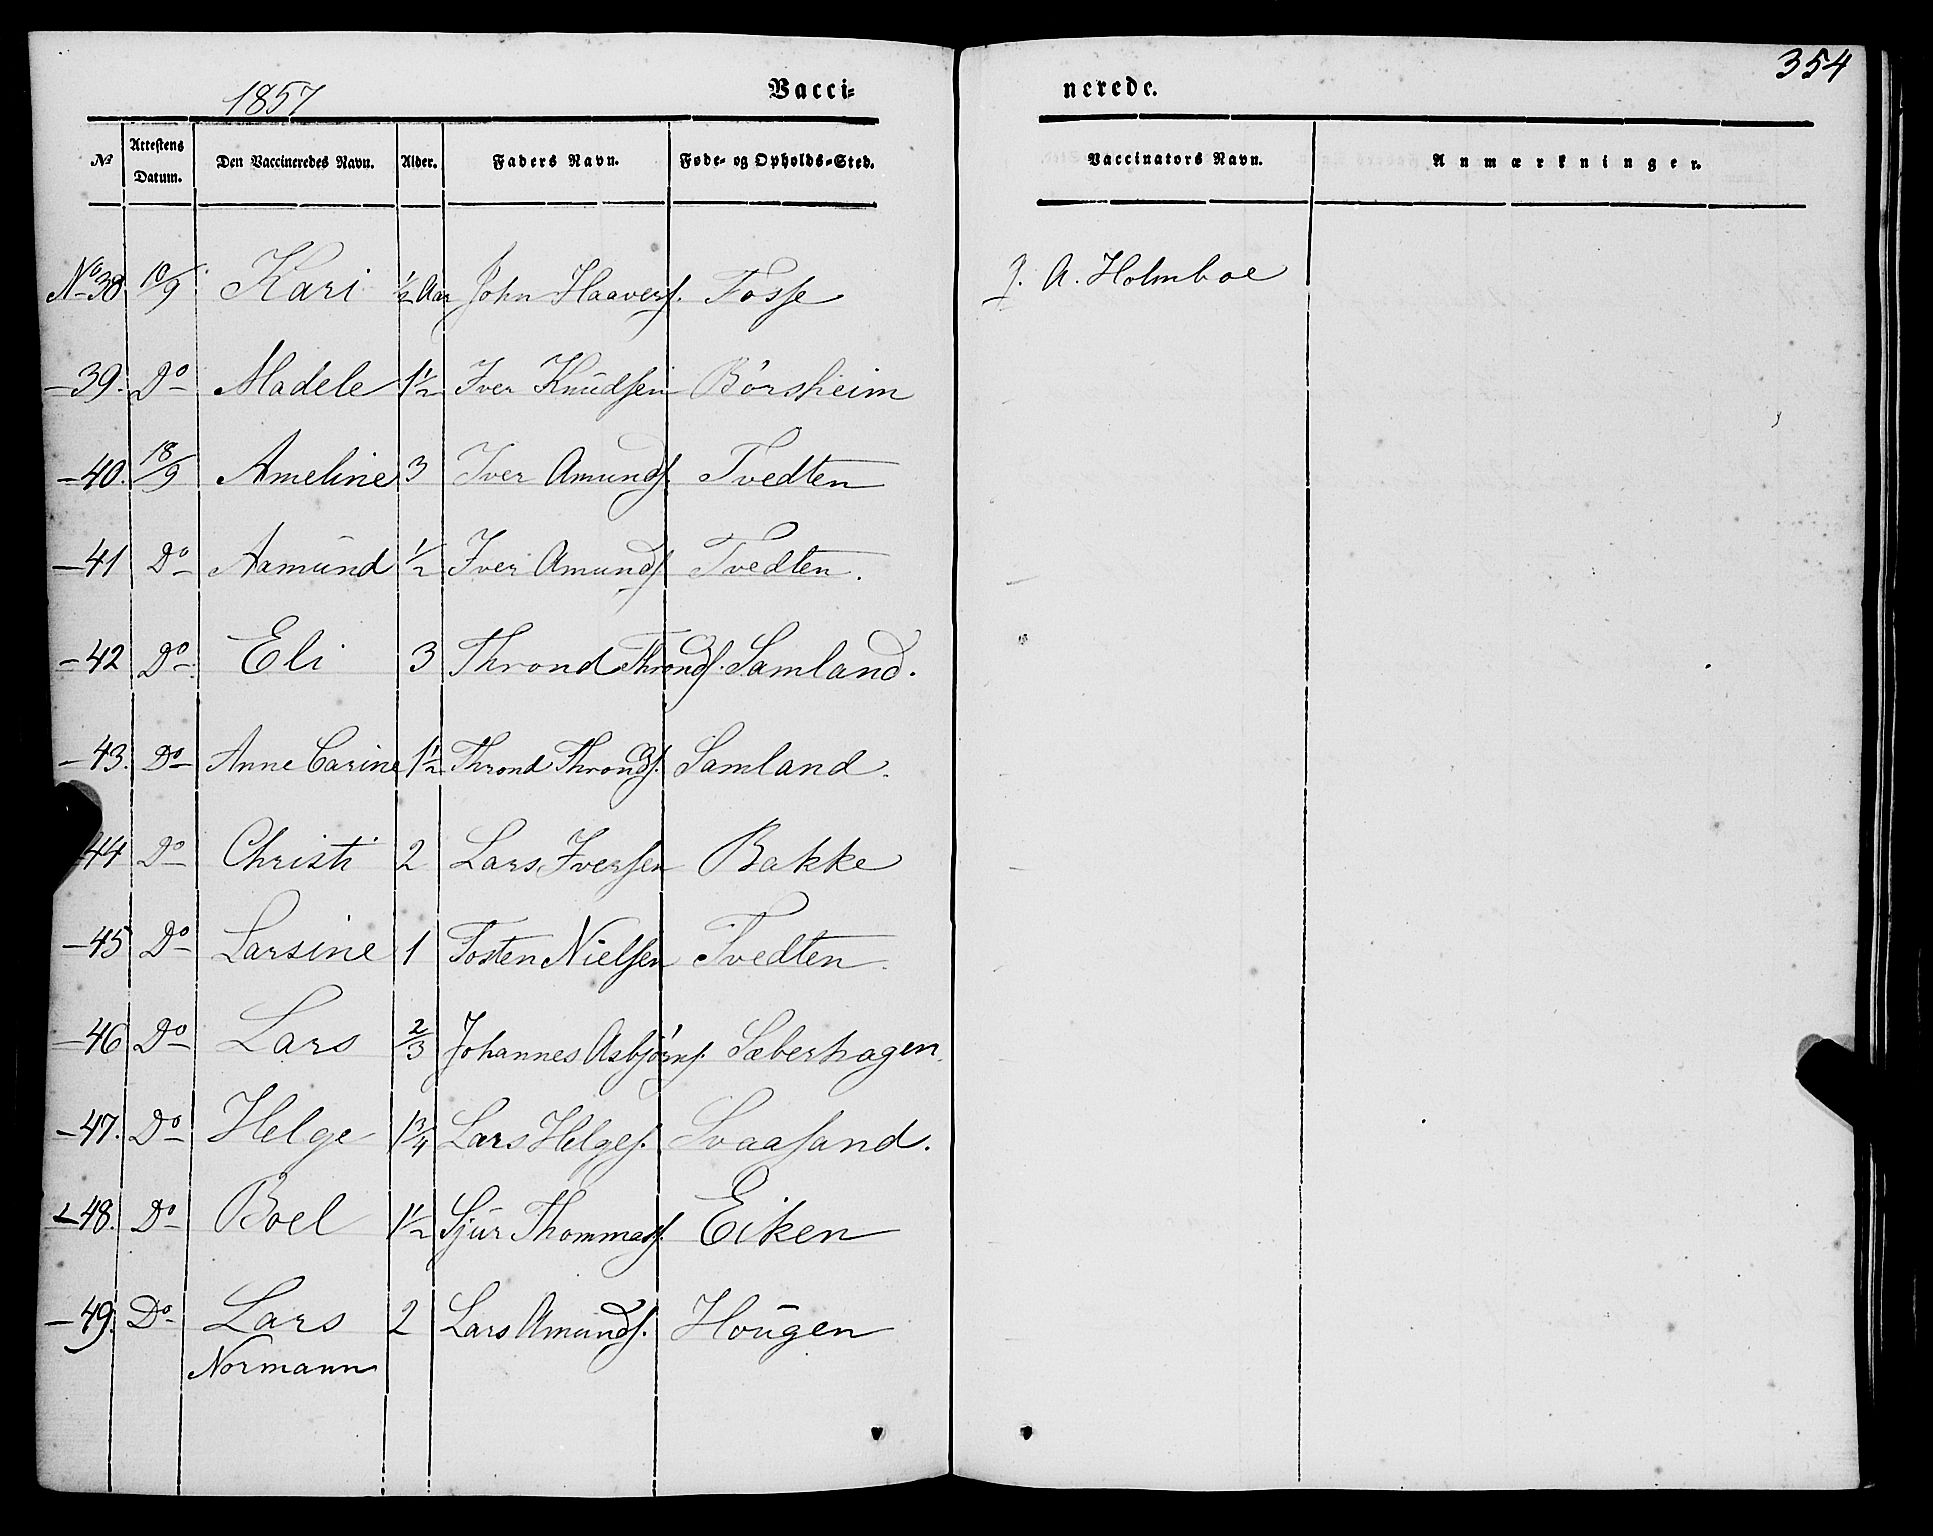 354
1857
Vacci-
nerede.
No Attestens Datum. Den Vaccineredes Navn. Alder. Faders Navn. Føde- og Opholds-Sted. Vaccinators Navn. Anmærkninger.
No 38 10/9 Kari 1/2 Aar John Haavers. Fosse J. A. Holmboe
-39. Do Madele 1 1/2 Iver Knudsen Børsheim
-40. 18/9 Ameline 3 Iver Amunds. Tvedten
-41 Do Aamund 1/2 Iver Amunds. Tvedten.
-42 Do Eli 3 Thrond Thronds. Samland.
-43. Do Anne Carine 1 1/2 Thrond Thronds. Samland.
44 Do Christi 2 Lars Iversen Bakke
-45 Do Larsine 1 Tosten Nielsen Tvedten
-46 Do Lars 2/3 Johannes Asbjørns. Sæberhagen.
-47. Do Helge 1 3/4 Lars Helges. Svaasand.
-48. Do Boel 1 1/2 Sjur Thommas. Eiken
-49. Do Lars 2 Lars Amunds. Hougen
Normann